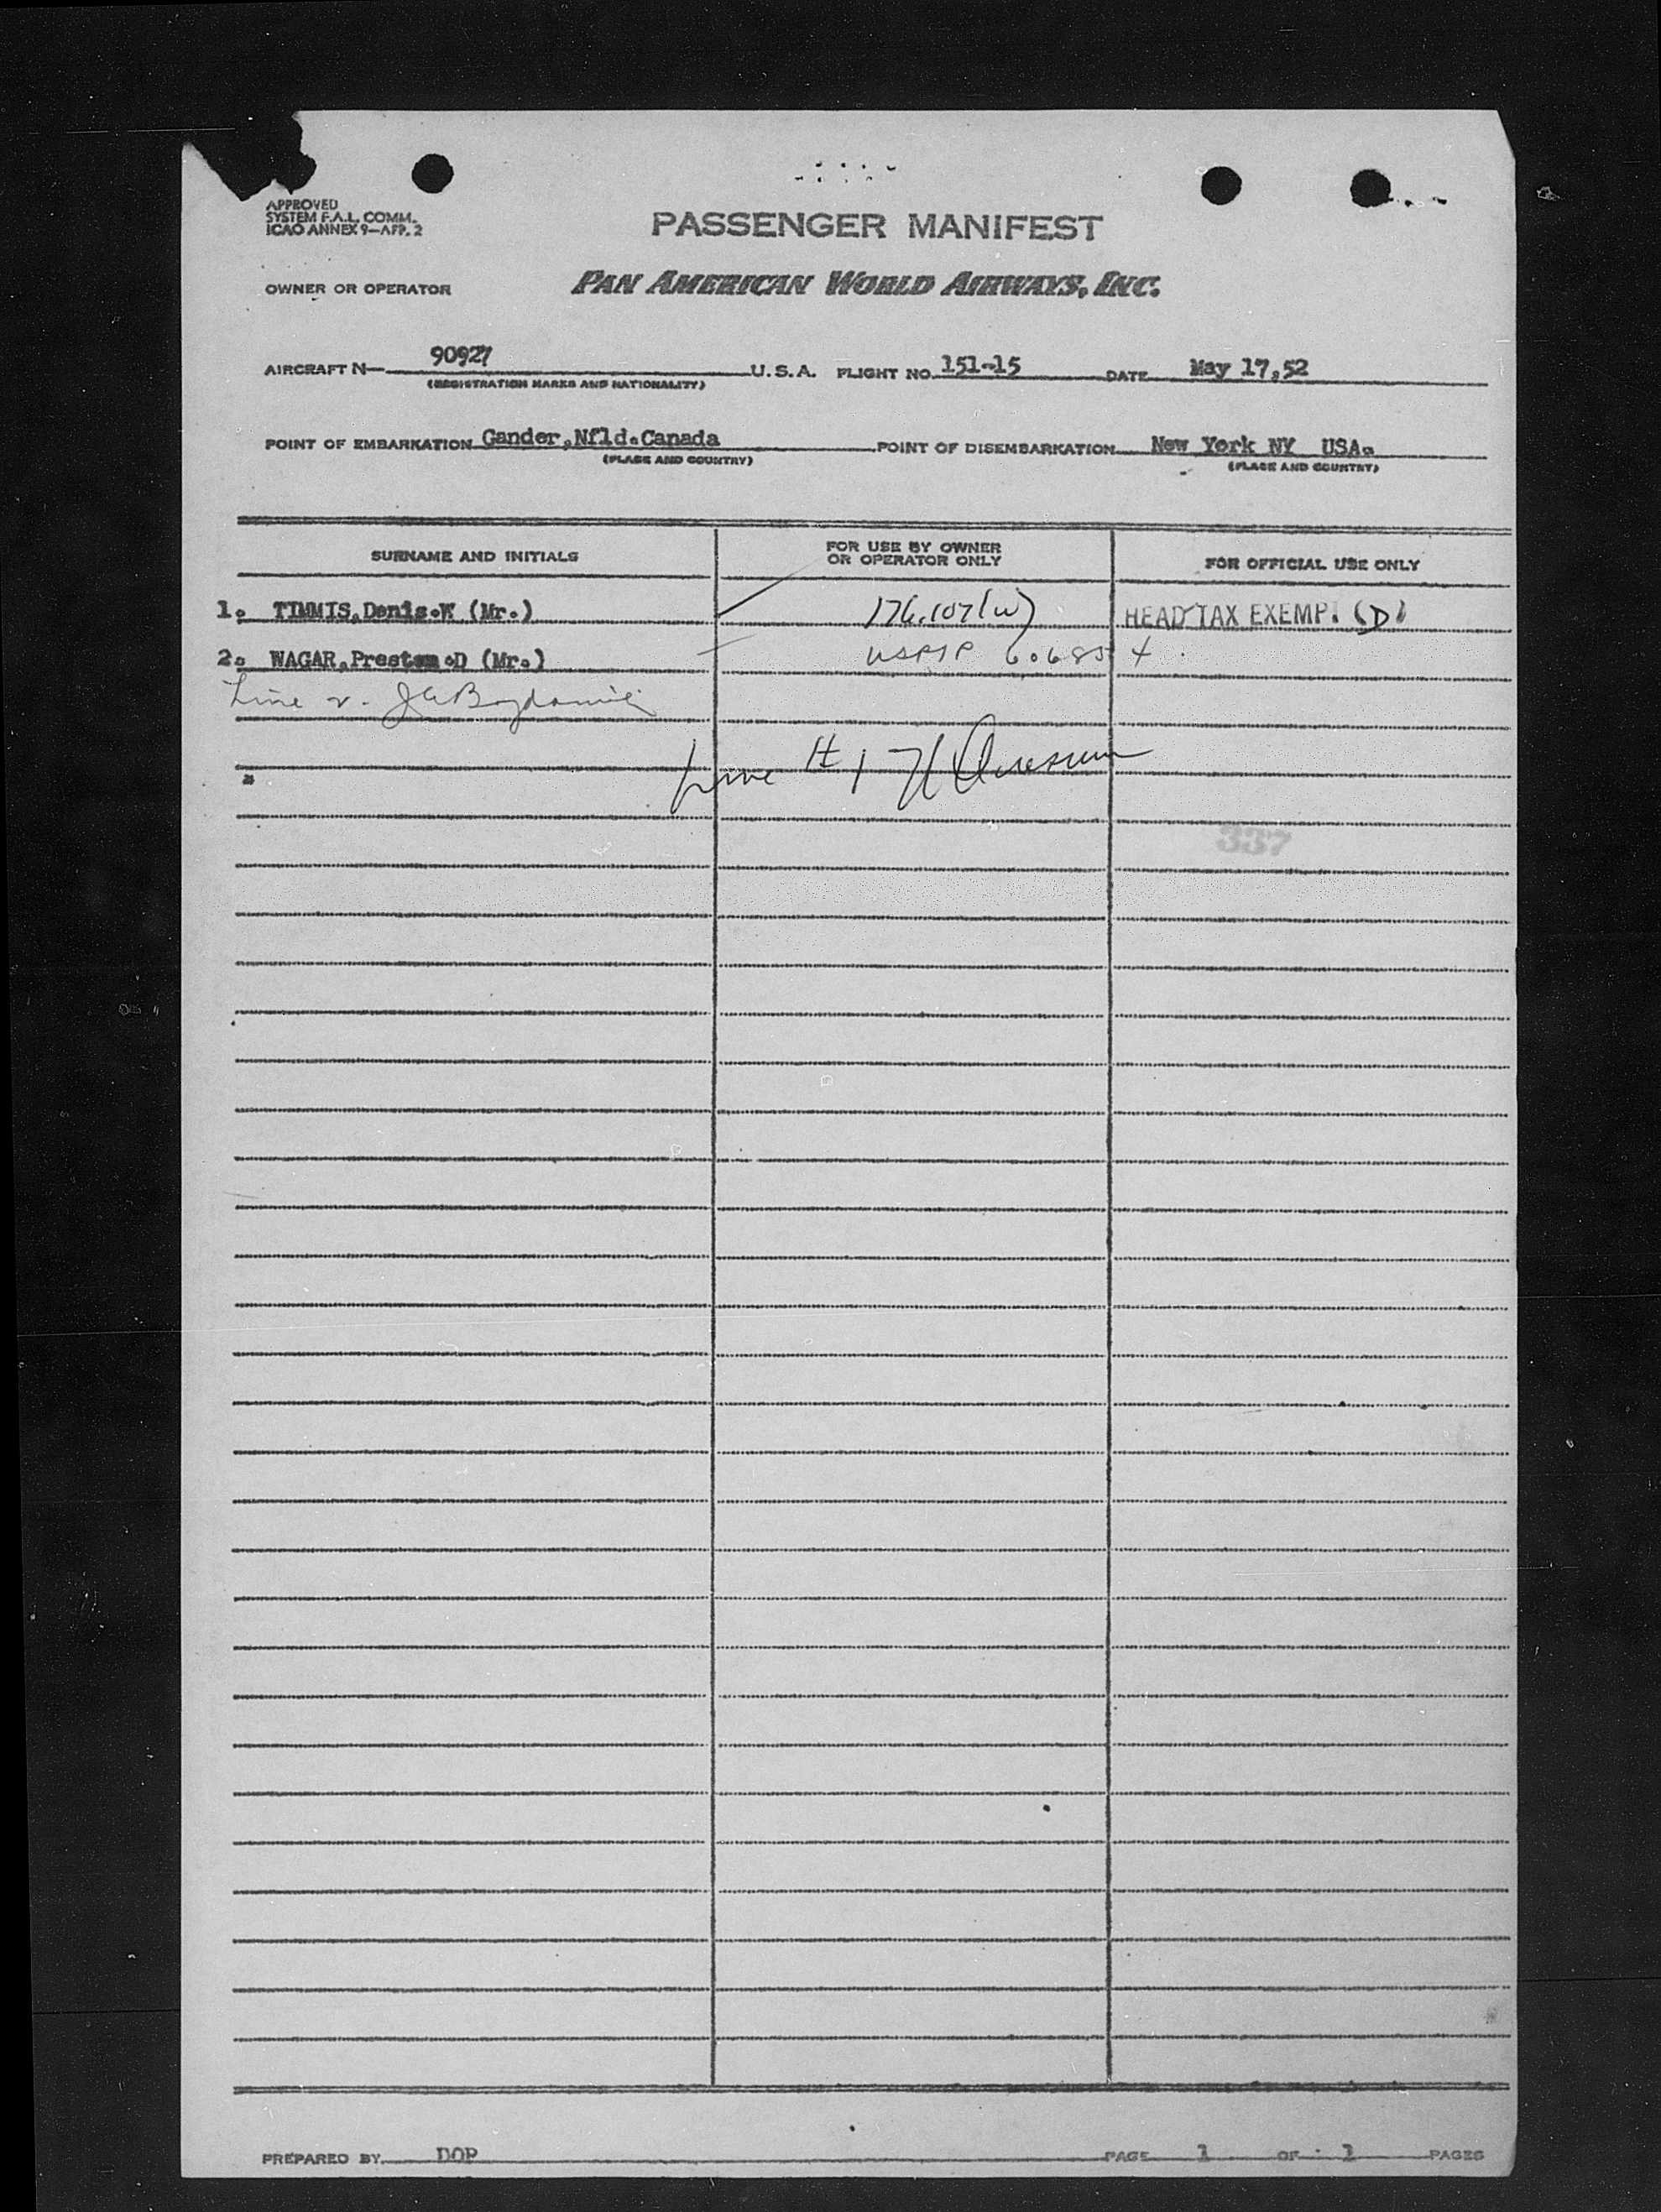 APPROVED
SYSTEM F.A.L. COMM.
ICAO ANNEX 9—APP. 2
PASSENGER MANIFEST
OWNER OR OPERATOR PAN AMERICAN WORLD AIRWAYS, INC.
AIRCRAFT N— 90927 U.S.A. FLIGHT NO. 151-15 DATE May 17,52
(REGISTRATION MARKS AND NATIONALITY)
POINT OF EMBARKATION Gander,Nfld.Canada POINT OF DISEMBARKATION New York NY USA.
(PLACE AND COUNTRY) (PLACE AND COUNTRY)
SURNAME AND INITIALS FOR USE BY OWNER OR OPERATOR ONLY FOR OFFICIAL USE ONLY
1. TIMMIS,Denis.W (Mr.) 176.107(W) HEAD TAX EXEMP. (D)
2. WAGAR,Preston.D (Mr.) 60685 4
Line 2.
Line # 1
337
PREPARED BY DOP PAGE 1 OF 1 PAGES